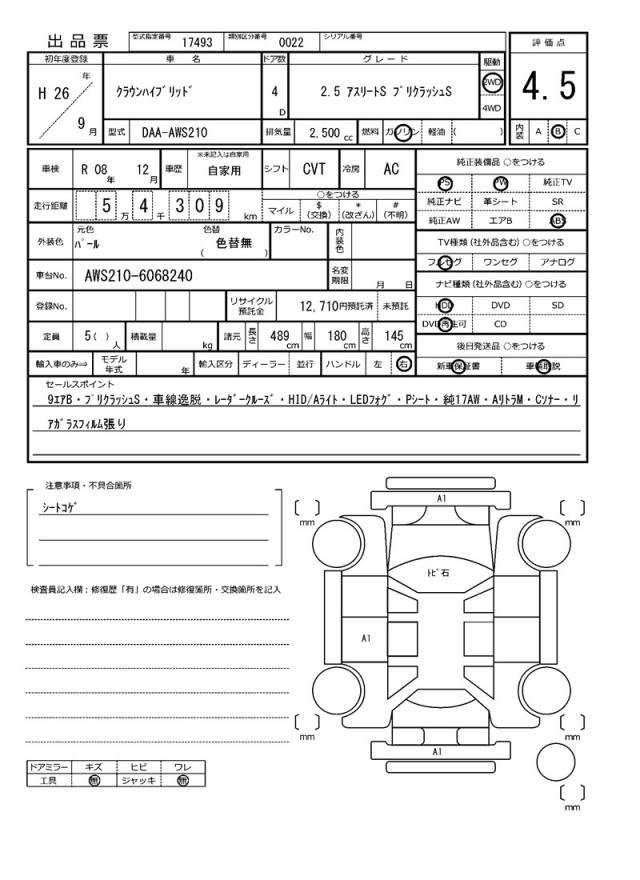 出品票 型式指定番号 17493 類別区分番号 0022 シリアル番号
初年度登録 車名 ドア数 グレード 駆動 評価点
H 26 年 9 月 クラウンハイブリッド 4 D 2.5 アスリートS ブリクラッシュS 2WD 4WD 4.5
型式 DAA-AWS210 排気量 2,500 cc 燃料 ガソリン 軽油 ( ) 内装 A B C
車検 R 08 年 12 月 車歴 ※未記入は自家用 自家用 シフト CVT 冷房 AC
走行距離 5 万 4 千 3 0 9 km ○をつける マイル $ (交換) * (改ざん) # (不明)
外装色 元色 パール 色替 ( 色替無 ) カラーNo. 内装色
車台No. AWS210-6068240 名変期限 月 日
登録No. リサイクル預託金 12,710円預託済 未預託
定員 5( ) 人 積載量 kg 諸元 長さ 489 cm 幅 180 cm 高さ 145 cm
輸入車のみ⇒ モデル年式 年 輸入区分 ディーラー 並行 ハンドル 左 右
純正装備品 ○をつける
PS PW 純正TV
純正ナビ 革シート SR
純正AW エアB ABS
TV種類(社外品含む)○をつける
フルセグ ワンセグ アナログ
ナビ種類(社外品含む)○をつける
HDD DVD SD
DVD再生可 CD
後日発送品 ○をつける
新車保証書 車輌取説
セールスポイント
9エアB・ブリクラッシュS・車線逸脱・レーダークルーズ・HID/Aライト・LEDフォグ・Pシート・純17AW・AリトラM・Cソナー・リ
アガラスフィルム張り
注意事項・不具合箇所
シートコゲ
検査員記入欄：修復歴「有」の場合は修復箇所・交換箇所を記入
ドアミラー キズ ヒビ ワレ
工具 無 ジャッキ 無
A1
mm mm
トビ石
A1
mm mm
A1
mm